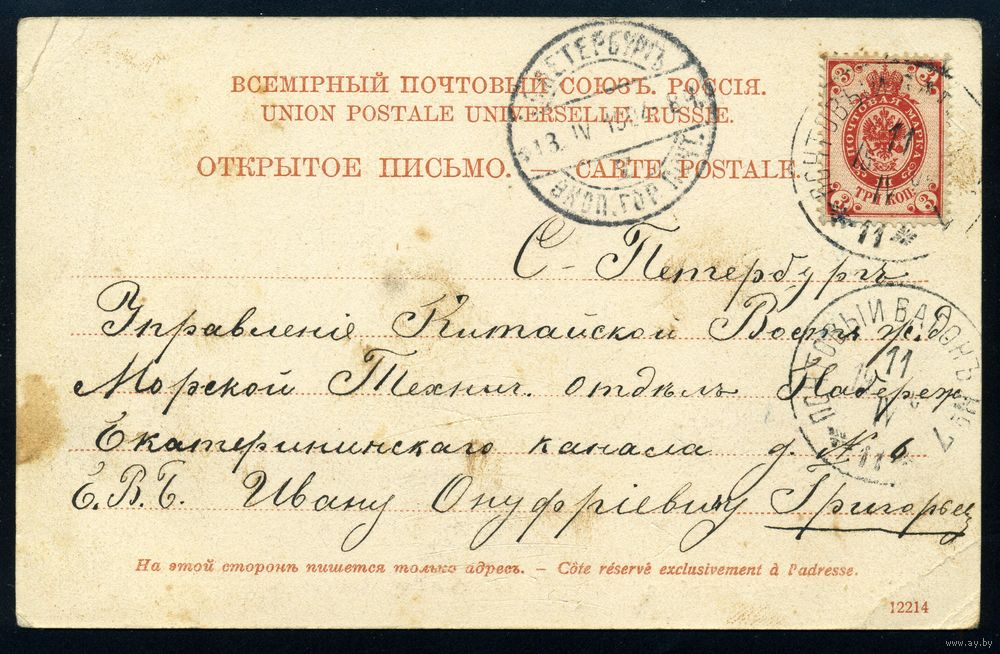 ВСЕМІРНЫЙ ПОЧТОВЫЙ СОЮЗЪ. РОССІЯ.
UNION POSTALE UNIVERSELLE. RUSSIE.
ОТКРЫТОЕ ПИСЬМО. — CARTE POSTALE.
С.ПЕТЕРБУРГЪ
13. IV
ЭКСП. ГОР. ПОЧТ.
ПОЧТОВАЯ МАРКА
3 3
ТРИ КОП.
3 3
11
IV
11
С-Петербургъ
Управленіе Китайской Вост. ж. д.
Морской Технич. отдѣлъ Набереж.
Екатерининскаго канала д. № 6
Е.В.Б. Ивану Онуфріевичу Григорьец
ПОЧТОВЫЙ ВАГОНЪ № 7
11
IV
11
На этой сторонѣ пишется только адресъ. – Côte réservé exclusivement à l'adresse.
12214
www.ay.by